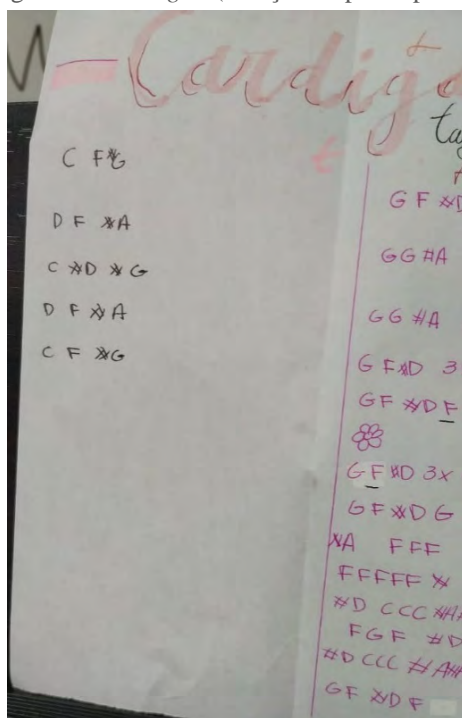 Cardiga
C F #G
D F #A
C #D #G
D F #A
C F #G
G F #D
GG #A
GG #A
G F #D 3
GF #D F
G F #D 3x
GF #D G
#A FFF
FFFFF #
#D CCC #A
FGF #D
#D CCC #A#
GF #D F